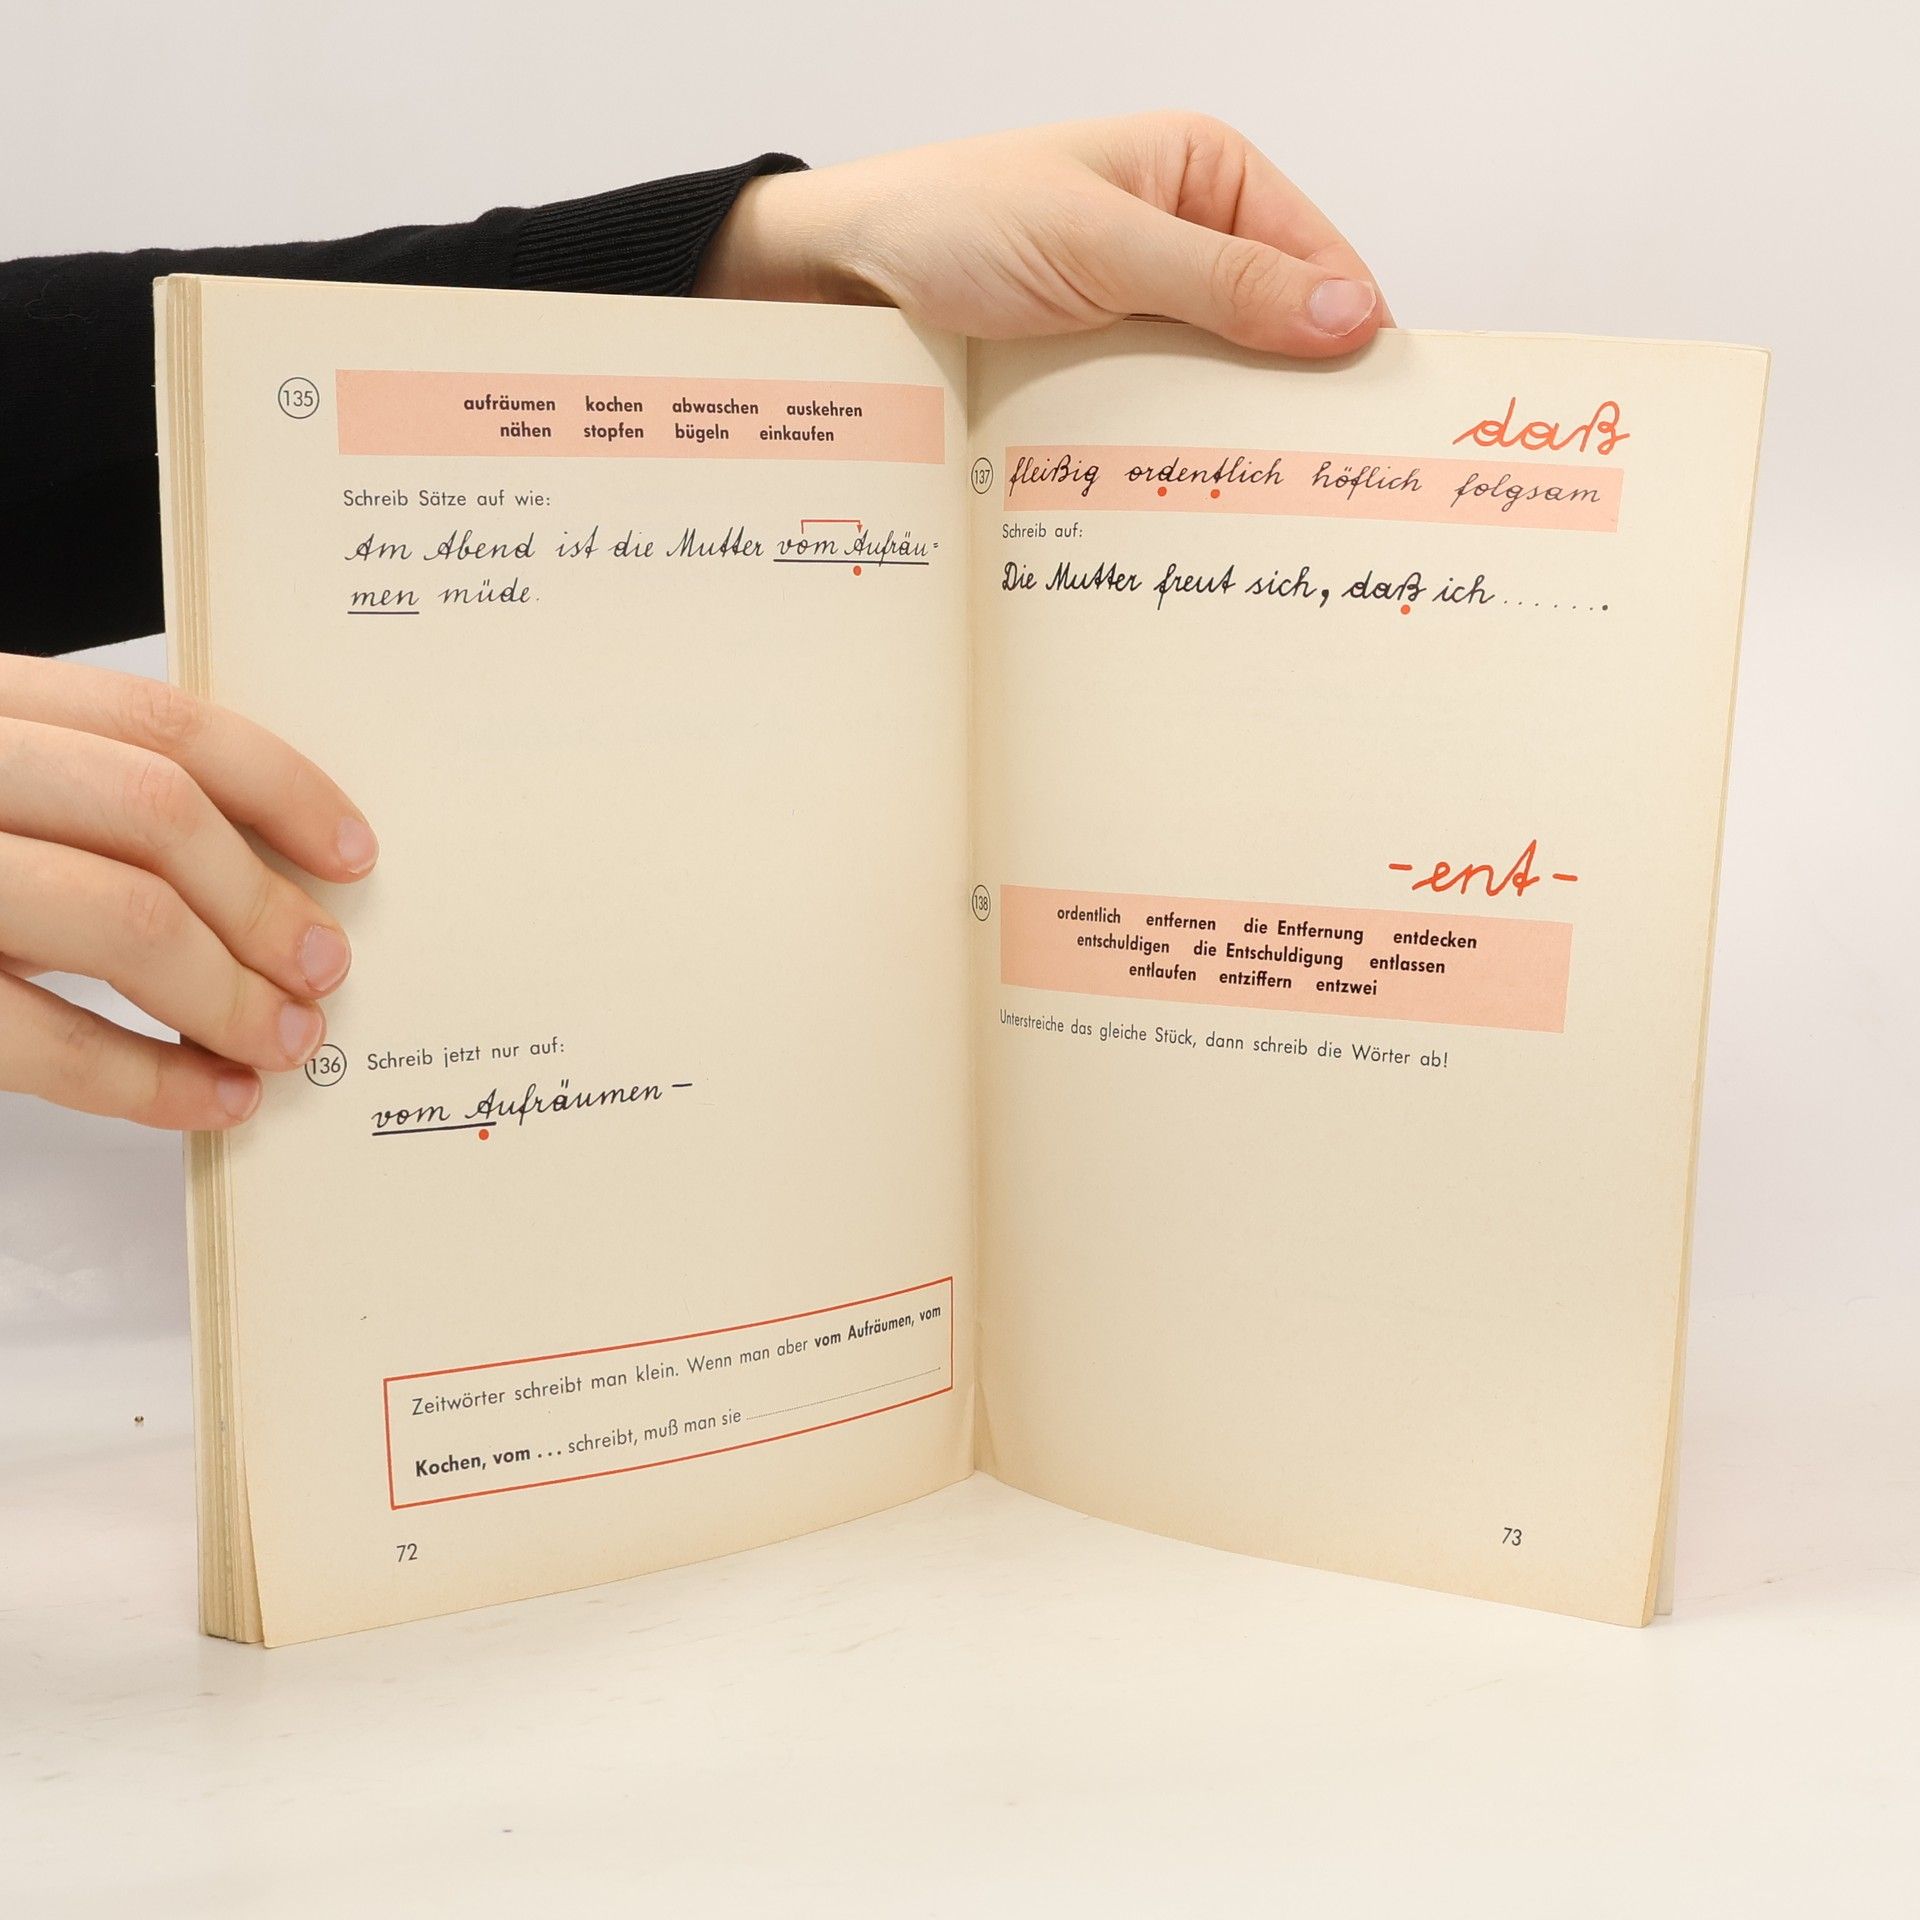 135
aufräumen kochen abwaschen auskehren
nähen stopfen bügeln einkaufen
Schreib Sätze auf wie:
Am Abend ist die Mutter vom Aufräu=
men müde.
136 Schreib jetzt nur auf:
vom Aufräumen –
Zeitwörter schreibt man klein. Wenn man aber vom Aufräumen, vom
Kochen, vom ... schreibt, muß man sie ........
72
daß
137 fleißig ordentlich höflich folgsam
Schreib auf:
Die Mutter freut sich, daß ich .......
-ent-
138
ordentlich entfernen die Entfernung entdecken
entschuldigen die Entschuldigung entlassen
entlaufen entziffern entzwei
Unterstreiche das gleiche Stück, dann schreib die Wörter ab!
73